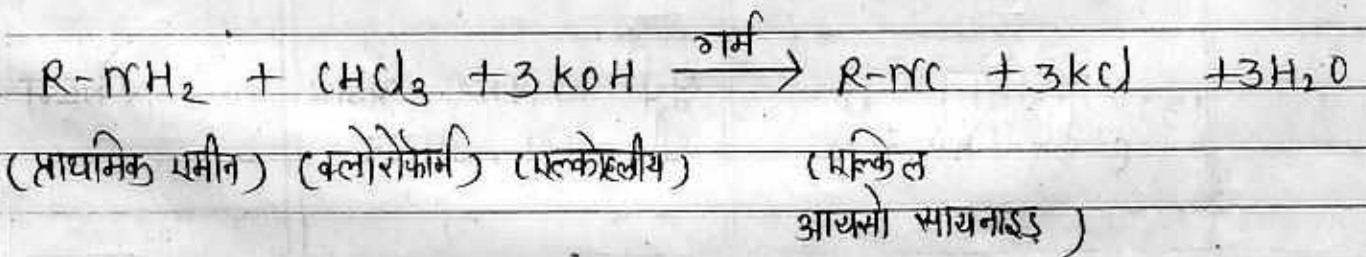 R-NH₂ + CHCl₃ + 3KOH गर्म → R-NC + 3KCl + 3H₂O
(प्राथमिक एमीन) (क्लोरोफॉर्म) (एल्कोहलीय) (एल्किल
आयसो सायनाइड)